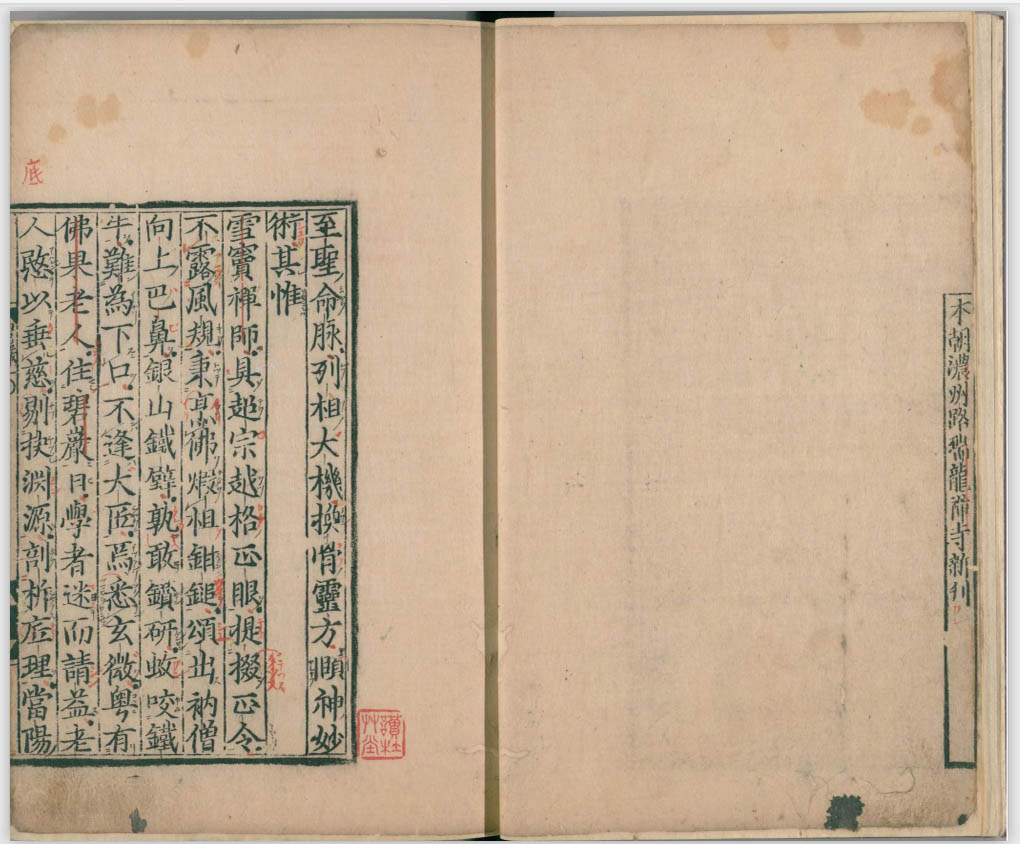 本朝濃州路瑞龍禅寺新刊
至聖命脉列祖大機換骨靈方頤神妙
術其惟
雪竇禪師具超宗越格正眼提掇正令
不露風規秉烹佛煅祖鉗鎚頌出衲僧
向上巴鼻銀山鐵壁孰敢鑽研蚊咬鐵
牛難為下口不逢大匠焉悉玄微粤有
佛果老人住碧巖日學者迷而請益老
人愍以垂慈剔抉淵源剖析底理當陽
底
讀杜艸堂